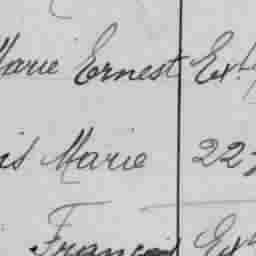 Marie Ernest Ext
is Marie 22
François Ext